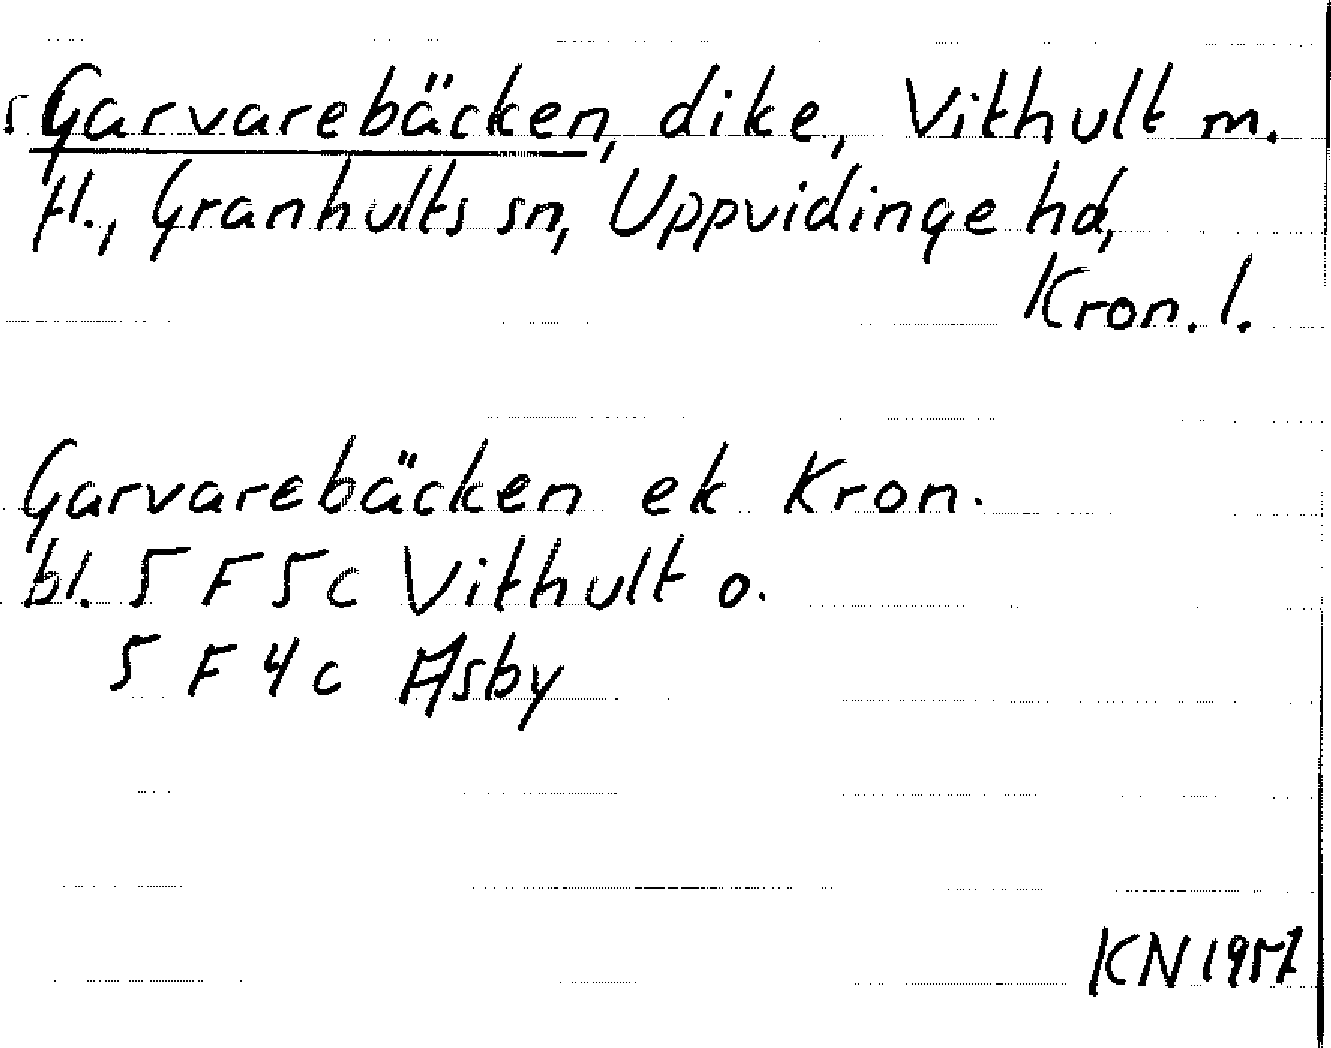 Garvarebäcken, dike, Vithult m.
fl., Granhults sn, Uppvidinge hd,
Kron. l.
Garvarebäcken ek Kron.
bl. 5 F 5 c Vithult o.
5 F 4 c Åsby
KN 1957